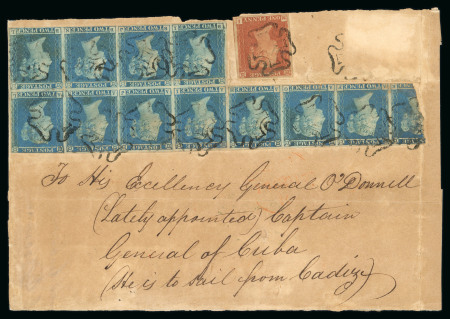 ONE PENNY
To His Excellency General O'Donnell
(Lately appointed) Captain
General of Cuba
(He is to sail from Cadize)